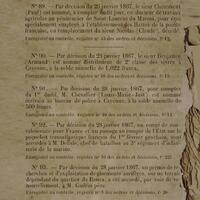 N° 89. — Par décision du 23 janvier 1867, le sieur
(Paul) est nommé, à compter dudit jour, de travaux
agricoles au pénitencier de Saint-Laurent du Maroni, pour être
spécialement employé à l'établissement des Hattes de la pointe
française, en remplacement du sieur Nicolas (Claude), décédé.
Enregistré au contrôle, registre n° 10 des ordres et décisions, f° 13.
N° 90. — Par décision du 23 janvier 1867, le sieur Bergamin
(Armand) est nommé distributeur de 2e classe des vivres à
Cayenne, à la solde annuelle de 1,022 francs.
Enregistré au contrôle, registre n° 10 des ordres et décisions, f°
N° 91. — Par décision du 28 janvier 1867, pour compter
du 1er dudit, M. Chevalier (Louis-Marie-Joseph), est nommé
écrivain au bureau de police à Cayenne, à la solde annuelle de
500 francs.
Enregistré au contrôle, registre n° 10 des ordres et décisions, f°
N° 92. — Par décision du 28 janvier 1867, un congé de
convalescence pour France et un passage au compte de l'État sur le
paquebot transatlantique français du 1er février prochain, sont
accordés à M. chef de bataillon au 2e régiment d'infanterie
de marine.
Enregistré au contrôle, registre n° 10 des ordres et décisions, f°
N° 93. — Par décision du 28 janvier 1867, un permis de
recherches et d'exploitation de gisements aurifères, sur un terrain
dépendant du quartier de Roura, a été accordé, par voie de
renouvellement, à M. Guérin père.
Enregistré au contrôle, registre n° 8 des ordres et décisions, f°